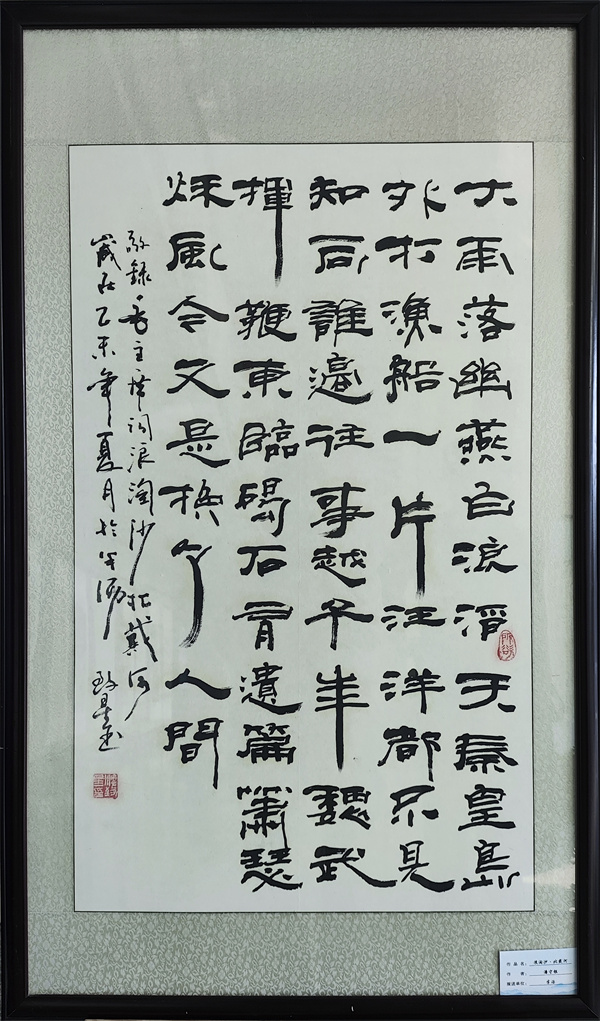 大雨落幽燕白浪滔天秦皇島
外打漁船一片汪洋都不見
知向誰邊往事越千年魏武
揮鞭東臨碣石有遺篇蕭瑟
秋風今又是換了人間
敬錄毛主席詞浪淘沙北戴河
歲在乙未年夏月於
作品名：浪淘沙·北戴河
作者：
报送单位：